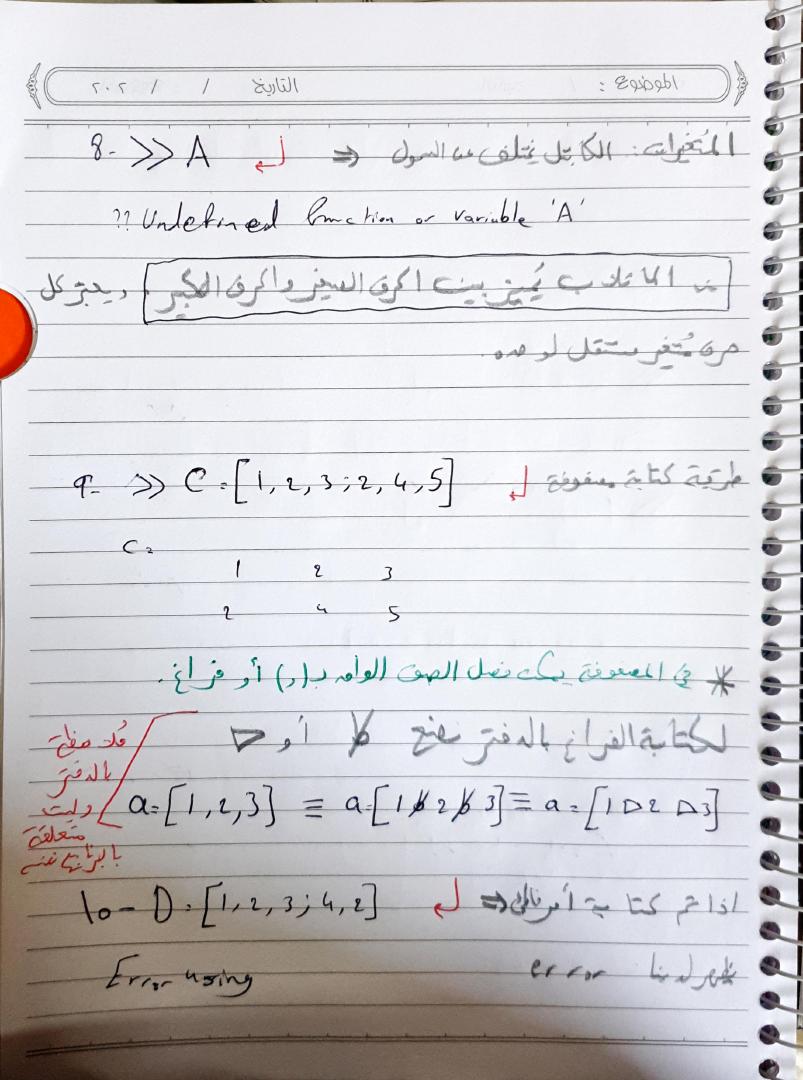 الموضوع : التاريخ / / ٢٠٢
المتغيرات: الكابتل يختلف عن السمول ⇐ ٨- >> A
?? Undefined function or variable 'A'
الماتلاب يُميز بين الحرف الصغير والحرف الكبير، ويعتبر كل
حرف مُتغير مستقل لوحده.
طريقة كتابة مصفوفة ٩- >> C=[1,2,3;2,4,5]
C=
1 2 3
2 4 5
* في المصفوفة يمكن فصل الصف الواحد بـ(,) أو فراغ.
لكتابة الفراغ بالدفتر نضع b أو ▷
a=[1,2,3] ≡ a=[1 b 2 b 3] ≡ a=[1 ▷ 2 ▷ 3]
ملاحظة
بالدفتر
وليست
متعلقة
بالبرنامج نفسه
اذا تم كتابة أمر ⇐ ١٠- D=[1,2,3;4,2]
يظهر لدينا error Error using